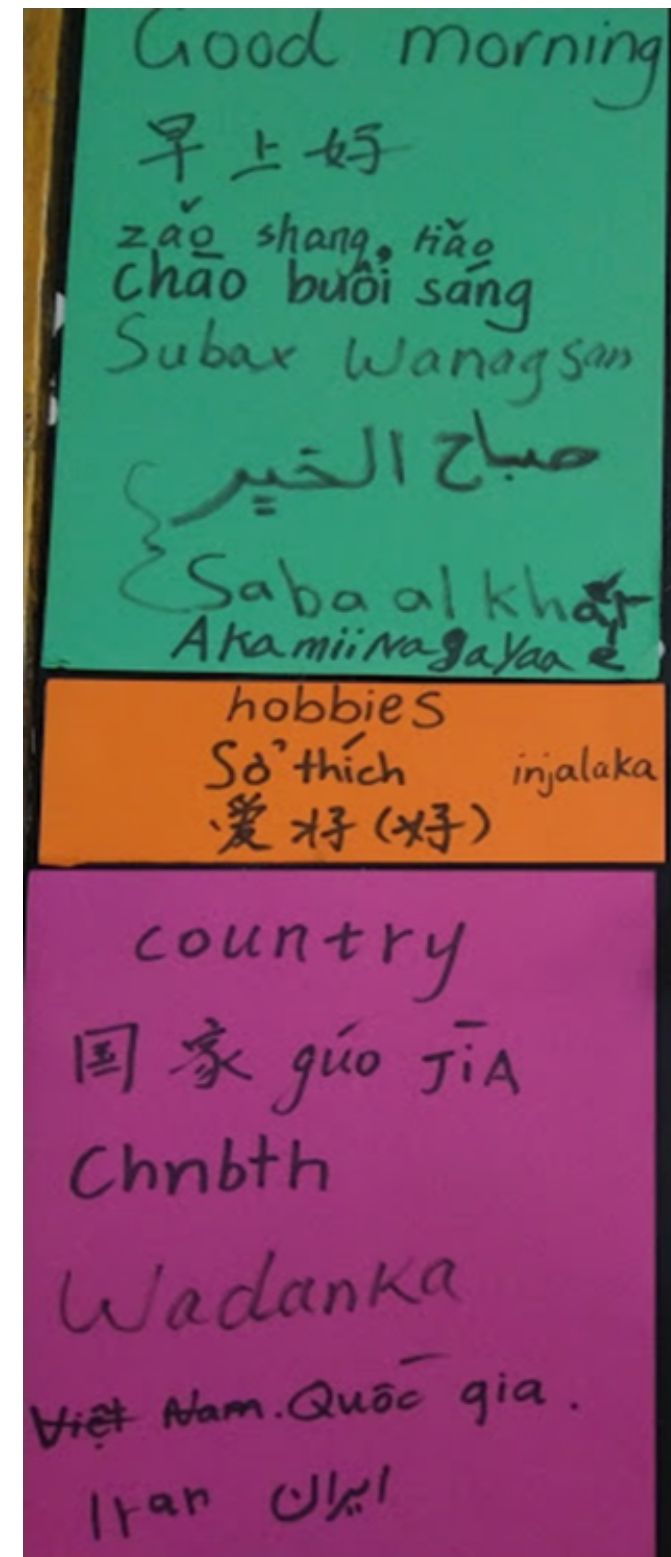 Good morning
早上好
zǎo shang, hǎo
chào buổi sáng
Subax Wanagsan
صباح الخير
Saba al khair
Akamii Nagayaa
hobbies
Sở thích injalaka
爱好 (好)
country
国家 gúo JīA
Chnbth
Wadanka
Việt Nam. Quốc gia.
Iran ایران